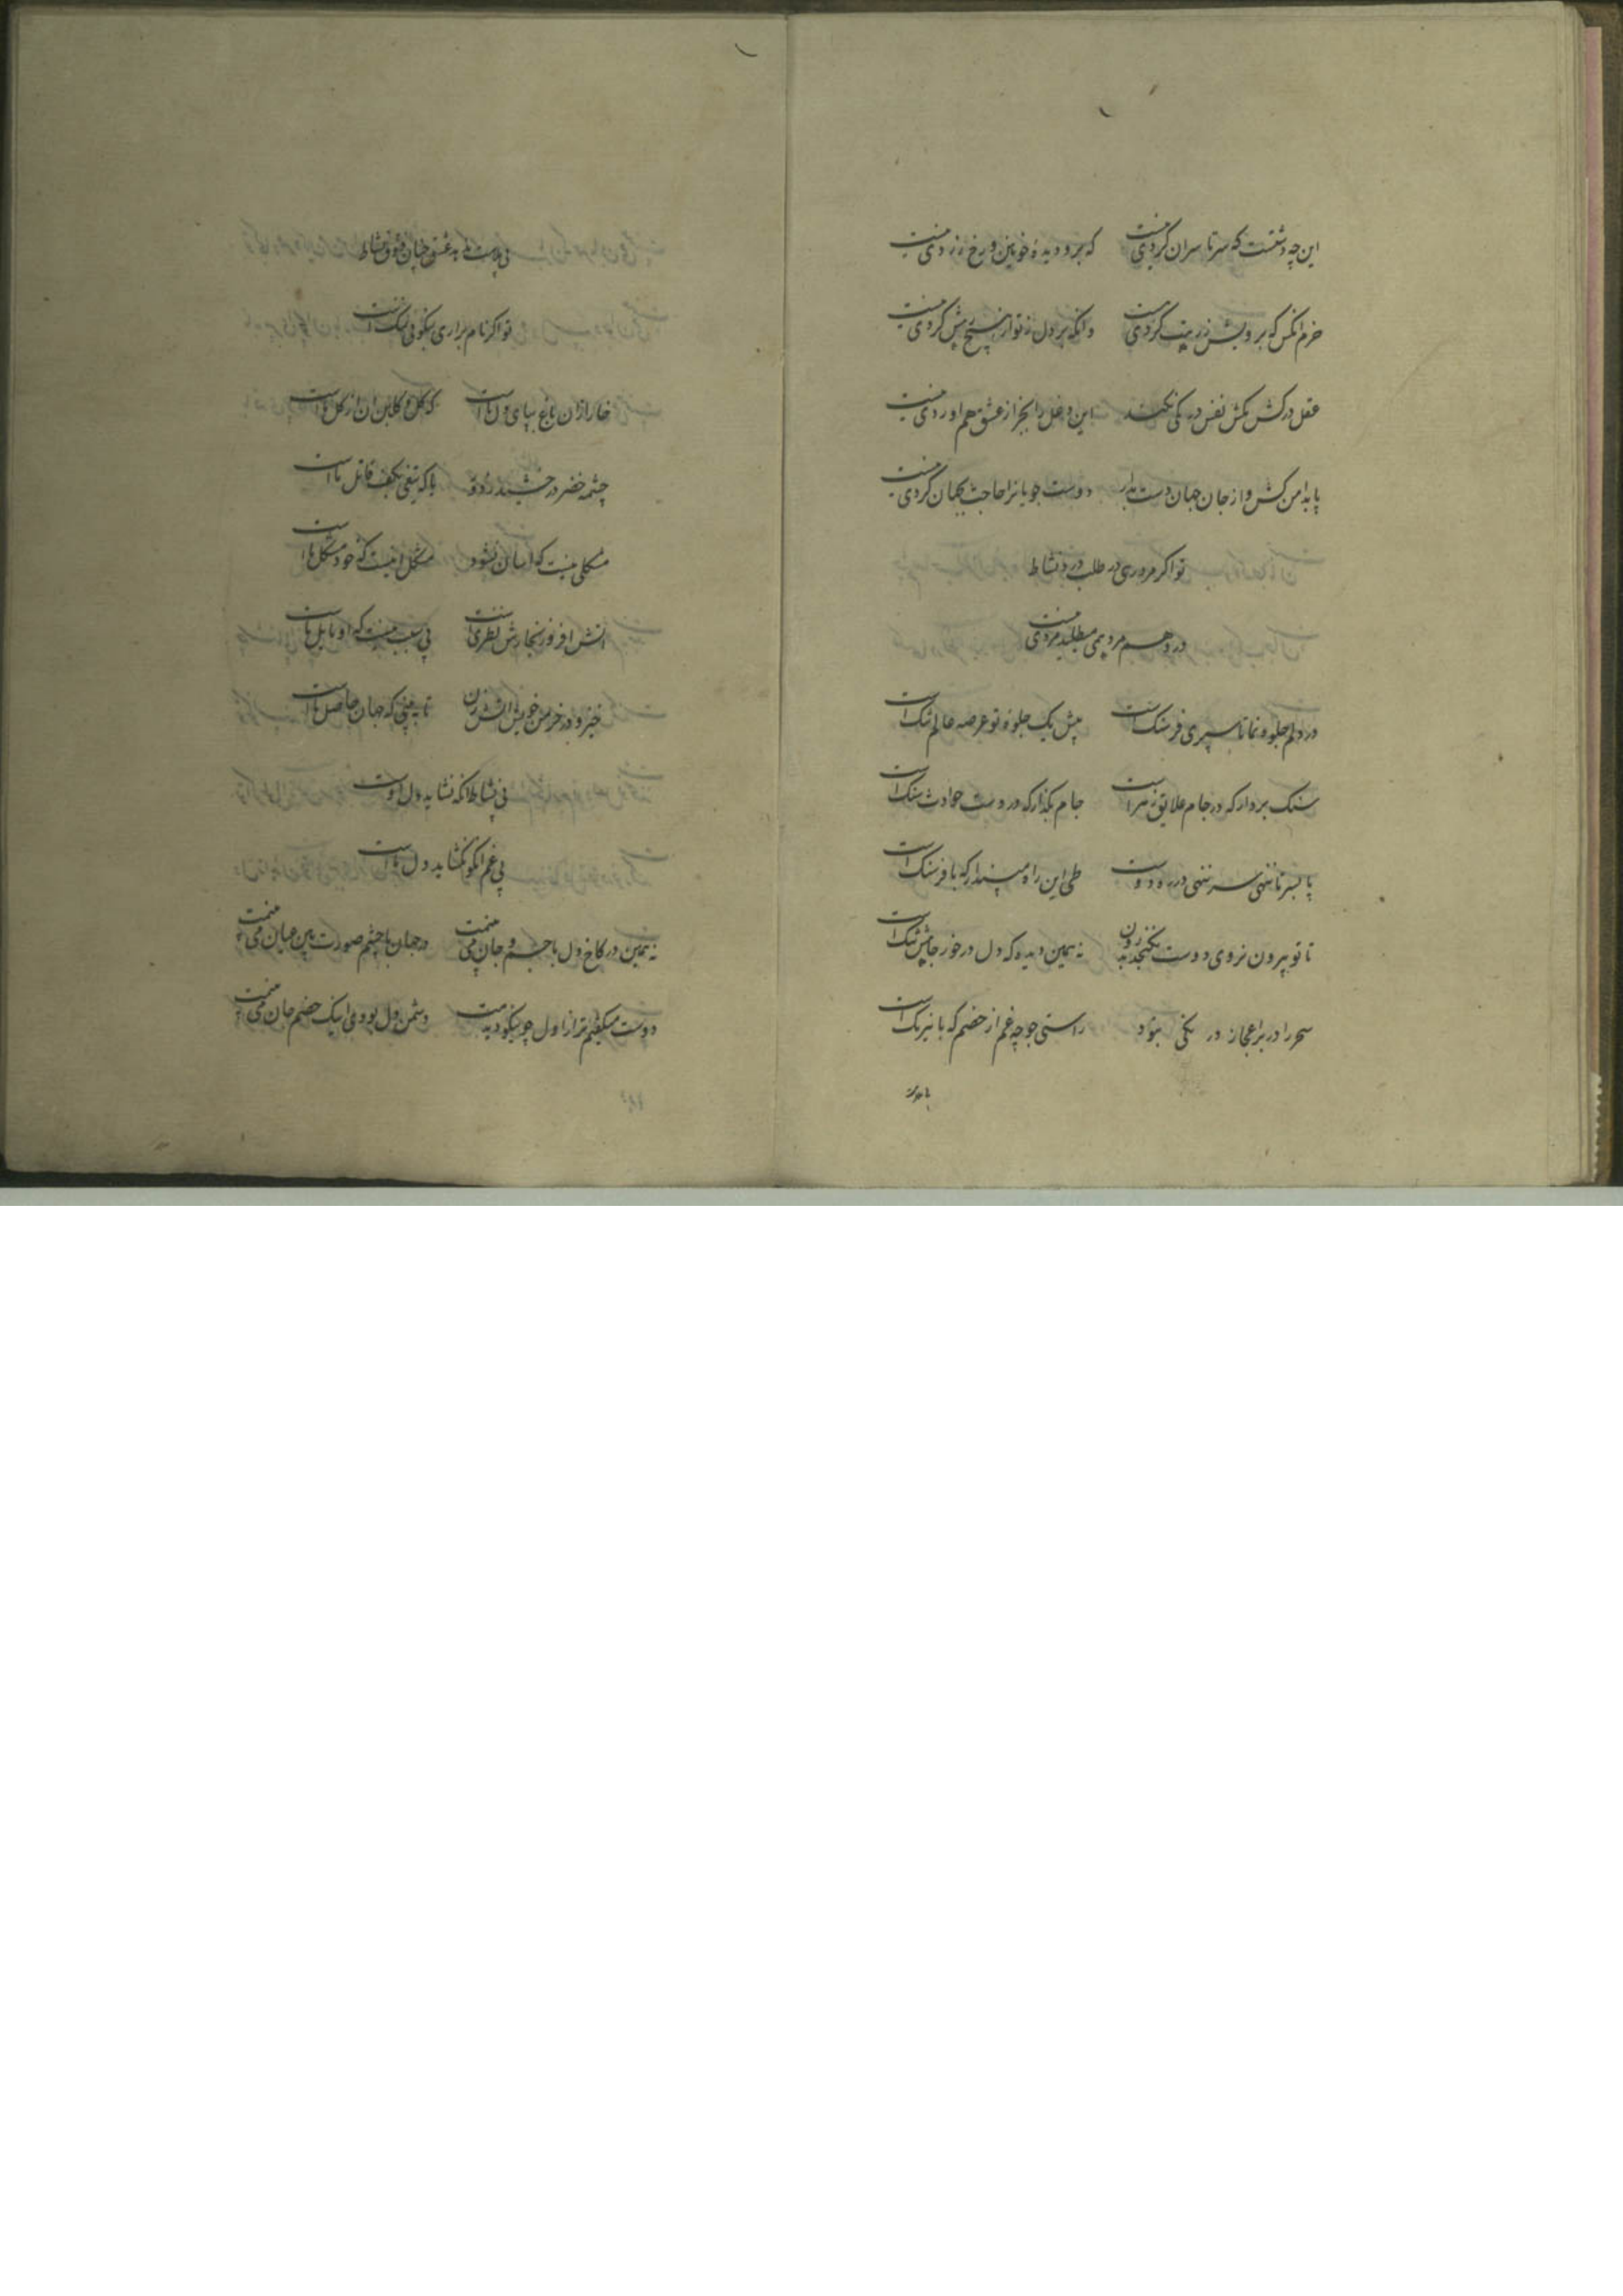 این چه دشتست که سرتاسر ان کردی نیست که برو دیده خونین و رخ زردی نیست
خرم انکس که برویش ز رهت کردی هست وانکه بر دل ز تواش رنج کردی نیست
عقل در کش مکش نفس در یکی نکند این دغل را بجز از عشق هم اوردی نیست
پا بدامن کش و از جان جهان دست بدار دوست جویانرا حاجت بجهان کردی نیست
تو اگر مردری در طلب درد نشاط
درد هم مرد همی میطلبد مردی نیست
در دلم جلوه نما تا سپری فرسنک است پیش یک جلوه تو عرصه عالم تنک است
سنک بردار که در جام علایق زهر است جام بگذار که در دست حوادث سنک است
پا بسر تا ننهی سر ننهی در ره دوست طی این راه مپندار که با فرسنک است
تا تو بیرون نروی دوست نکنجد بدرون نه همین دیده که دل در خور جایش تنک است
سحر را در بر اعجاز در نکی نبود راستی جو چه غم از خصم که با نیرنک است
تو اکر نام براری بنکویی ننک است
خار ازان باغ بپای دل ما است که کل و کلبن ان از کل ما است
چشمه خضر درخشید ز دور یا که تیغی بکف قاتل ما است
مشکلی نیست که اسان نشود مشکل اینست که خود مشکل ما است
اتش افروز بجانش نظریست بی سبب نیست که او مایل ما است
خیز و در خرمن خویش اتش زن تا به بینی که جهان حاصل ما است
بی نشاط انکه نشاید دل اوست
بی غم انکو نکشاید دل ما است
نه همین در کاخ دل با جسم و جان می بینمت در جهان با چشم صورت بین عیان می بینمت
دوست میکفتم ترا از اول چو نیکو دیدمت دشمن دل بودی اینک خصم جان می بینمت